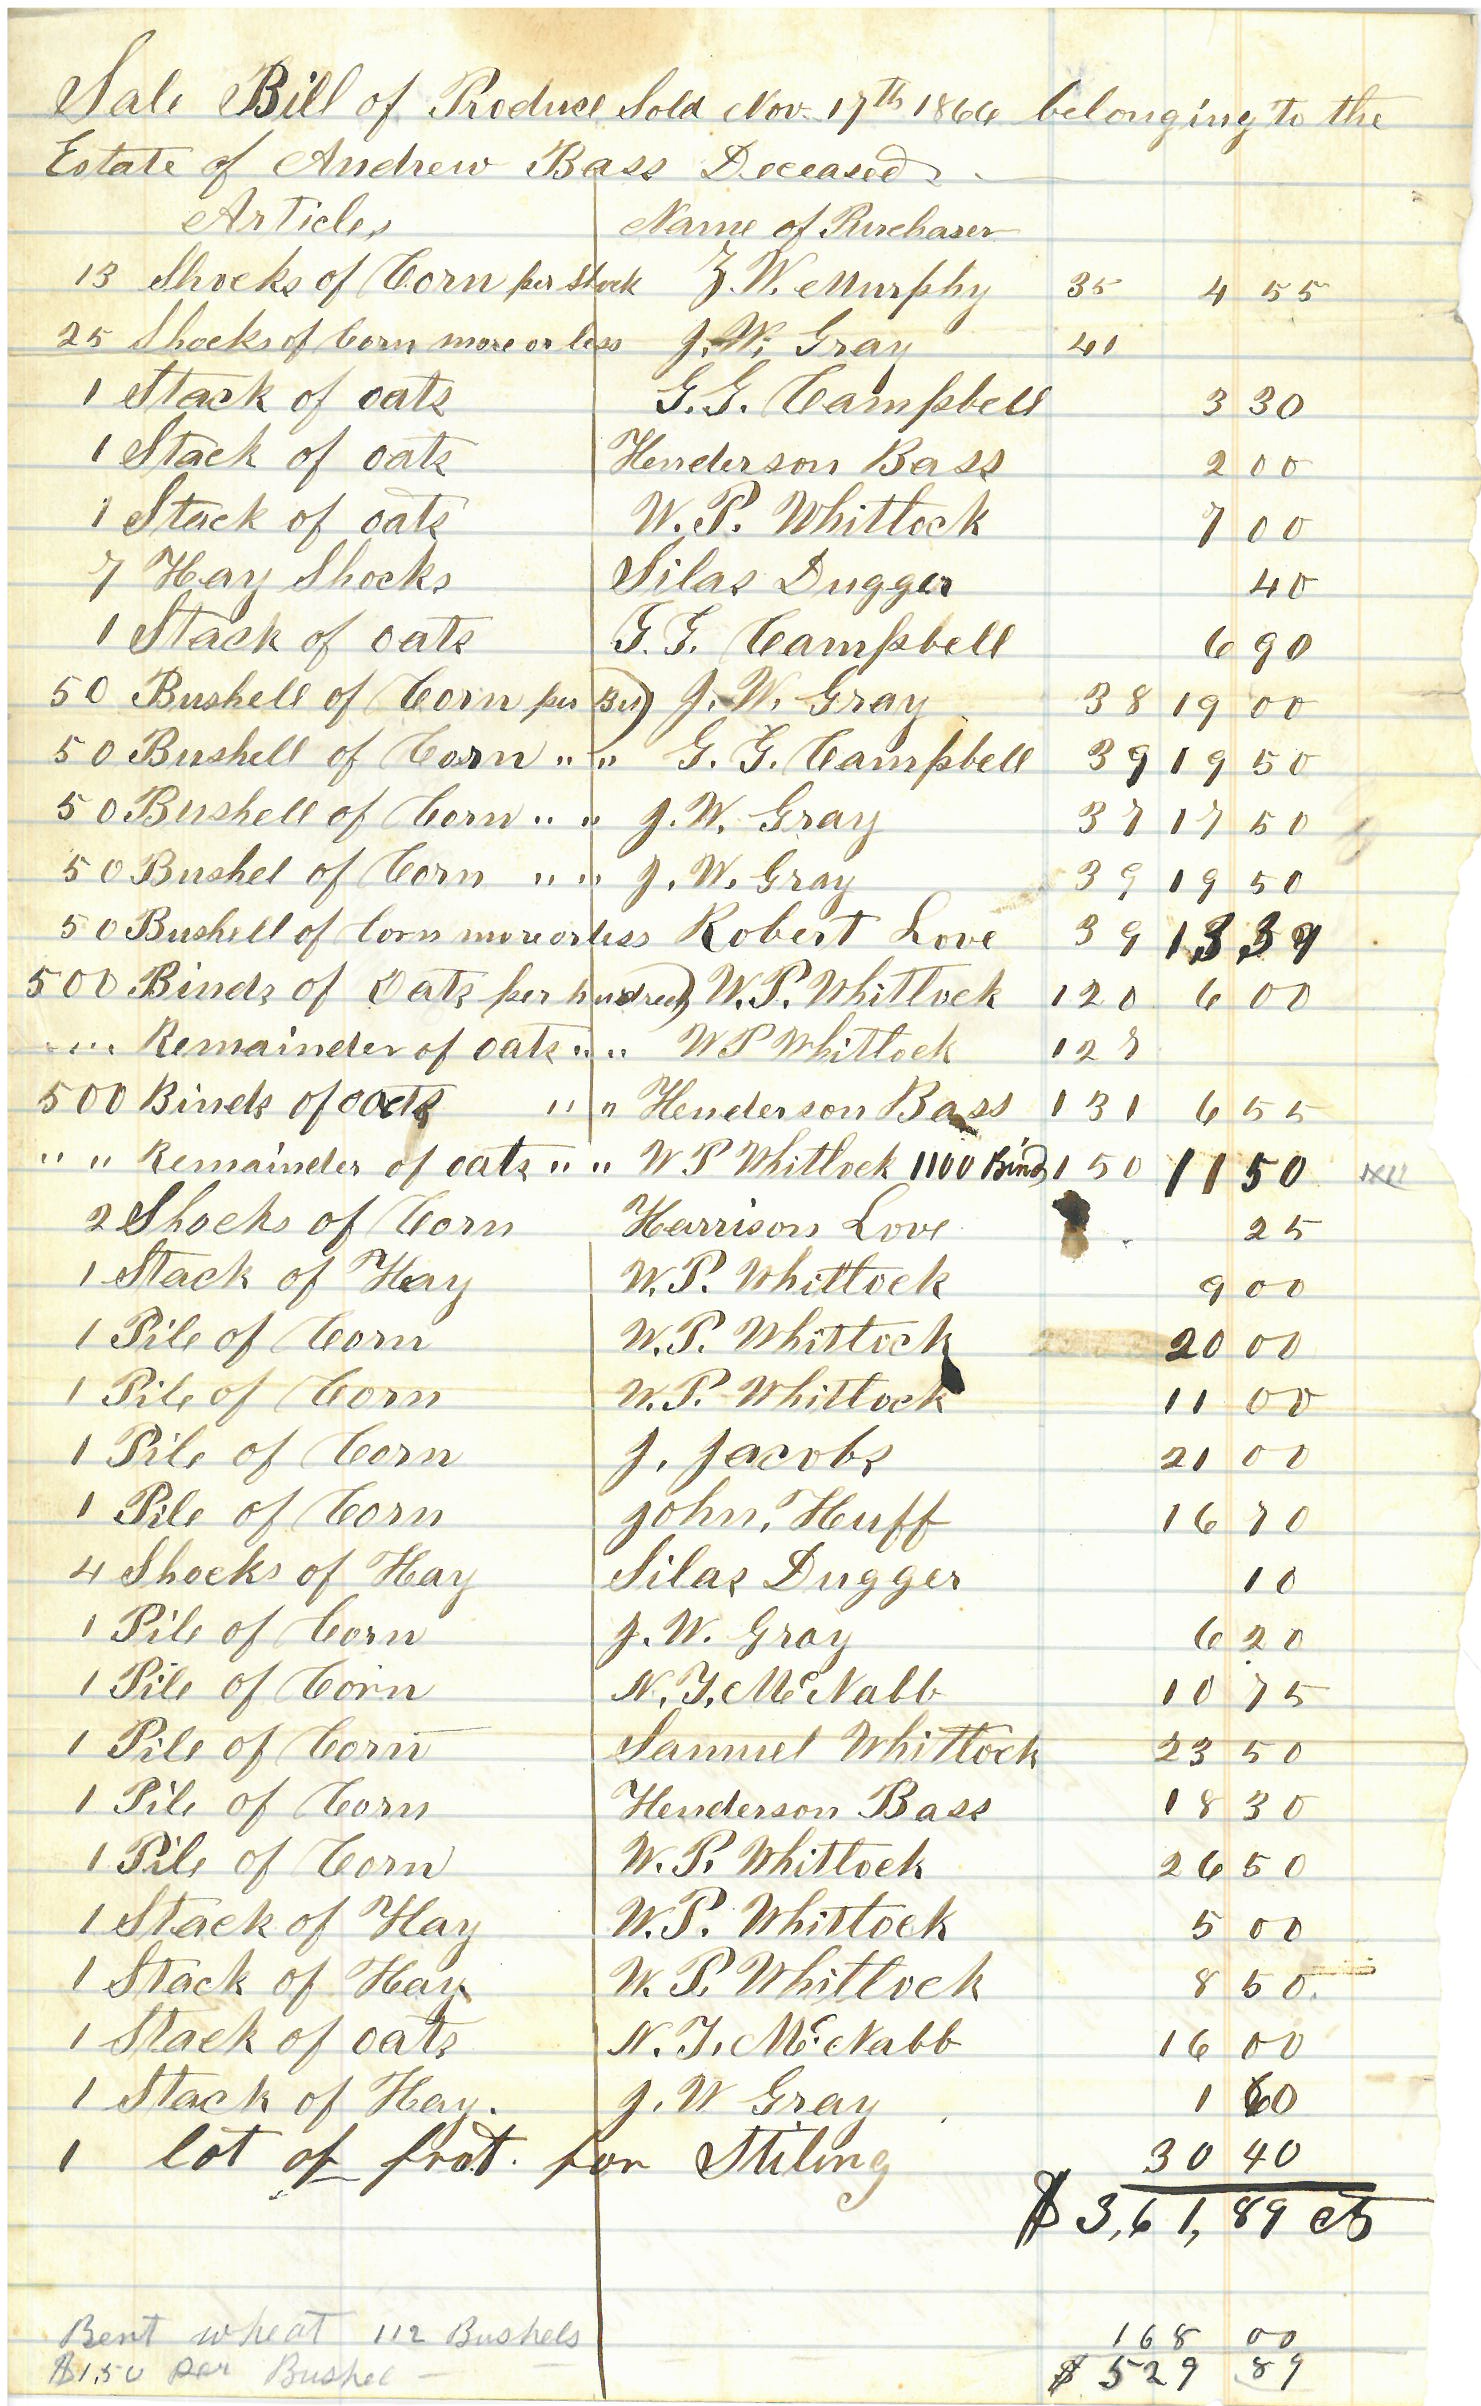 Sale Bill of Produce Sold Nov. 17th 1866 belonging to the
Estate of Andrew Bass Deceased
Articles Name of Purchaser
13 Shocks of Corn per Shock Z. W. Murphy 35 4 55
25 Shocks of Corn more or less J. W. Gray 41
1 Stack of oats G. G. Campbell 3 30
1 Stack of oats Henderson Bass 2 00
1 Stack of oats W. P. Whitlock 7 00
7 Hay Shocks Silas Dugger 40
1 Stack of oats G. G. Campbell 6 90
50 Bushell of Corn per Bu) J. W. Gray 38 19 00
50 Bushell of Corn " " G. G. Campbell 39 19 50
50 Bushell of Corn " " J. W. Gray 37 17 50
50 Bushel of Corn " " J. W. Gray 39 19 50
50 Bushell of Corn more or less Robert Love 39 13 39
500 Binds of Oats per hundred) W. P. Whitlock 120 6 00
" " Remainder of oats " " W P Whitlock 127
500 Binds of oats " " Henderson Bass 131 6 55
" " Remainder of oats " " W P Whitlock 1100 Binds 150 11 50
2 Shocks of Corn Harrison Love 25
1 Stack of Hay W. P. Whitlock 9 00
1 Pile of Corn W. P. Whitlock 20 00
1 Pile of Corn W. P. Whitlock 11 00
1 Pile of Corn J. Jacobs 21 00
1 Pile of Corn John, Huff 16 70
4 Shocks of Hay Silas Dugger 10
1 Pile of Corn J. W. Gray 6 20
1 Pile of Corn N. T. McNabb 10 75
1 Pile of Corn Samuel Whitlock 23 50
1 Pile of Corn Henderson Bass 18 30
1 Pile of Corn W. P. Whitlock 26 50
1 Stack of Hay W. P. Whitlock 5 00
1 Stack of Hay W. P. Whitlock 8 50
1 Stack of oats N. T. McNabb 16 00
1 Stack of Hay. J. W Gray 1 60
1 lot of frot. for Stiling 30 40
$ 3,61, 89 cts
Bent wheat 112 Bushels 168 00
$1,50 per Bushel — $ 529 89